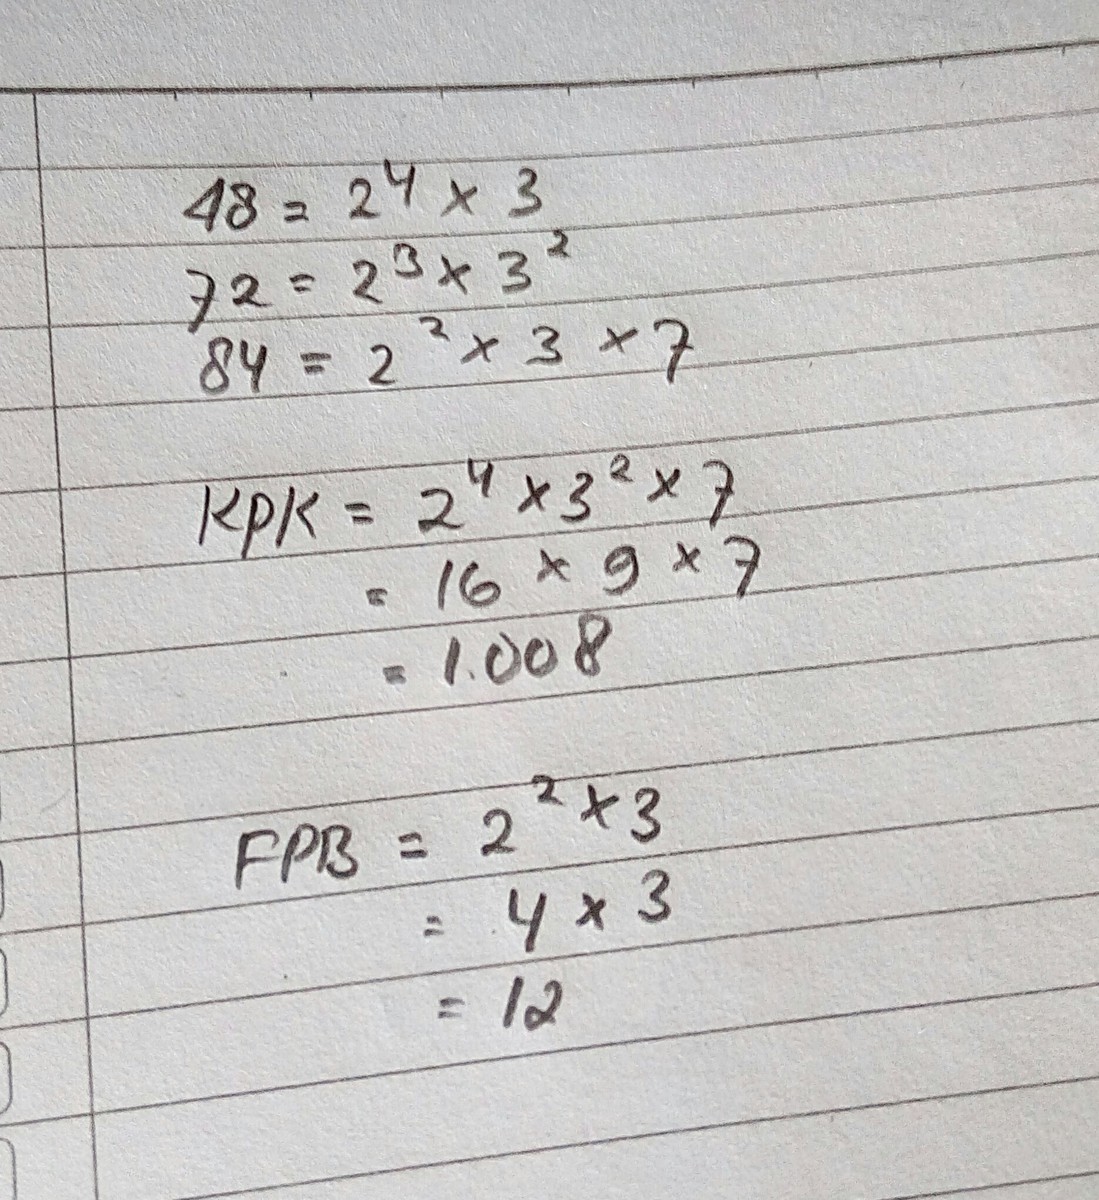 48 = 2⁴ × 3
72 = 2³ × 3²
84 = 2² × 3 × 7
KPK = 2⁴ × 3² × 7
= 16 × 9 × 7
= 1.008
FPB = 2² × 3
= 4 × 3
= 12